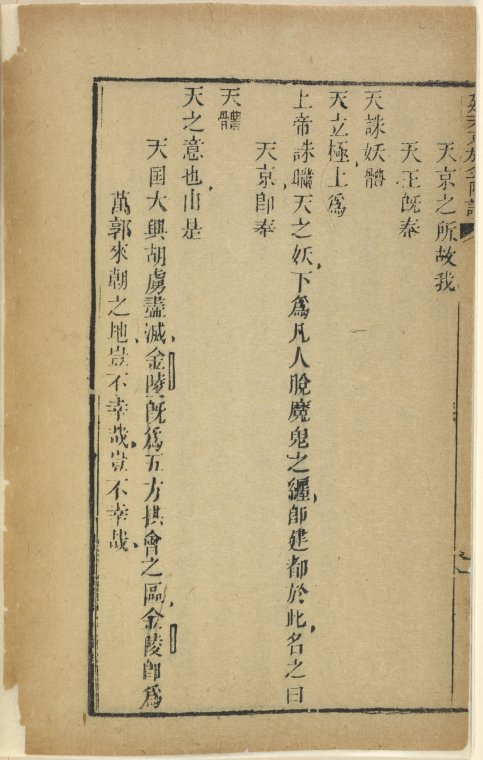 天京之所故我
天王旣奉
天誅妖體
天立極上爲
上帝誅瞞天之妖下爲凡人脫魔鬼之纏卽建都於此名之曰
天京卽奉
天體
天之意也由是
天囯大興胡虜盡滅金陵旣爲五方拱會之區金陵卽爲
萬郭來朝之地豈不幸哉豈不幸哉